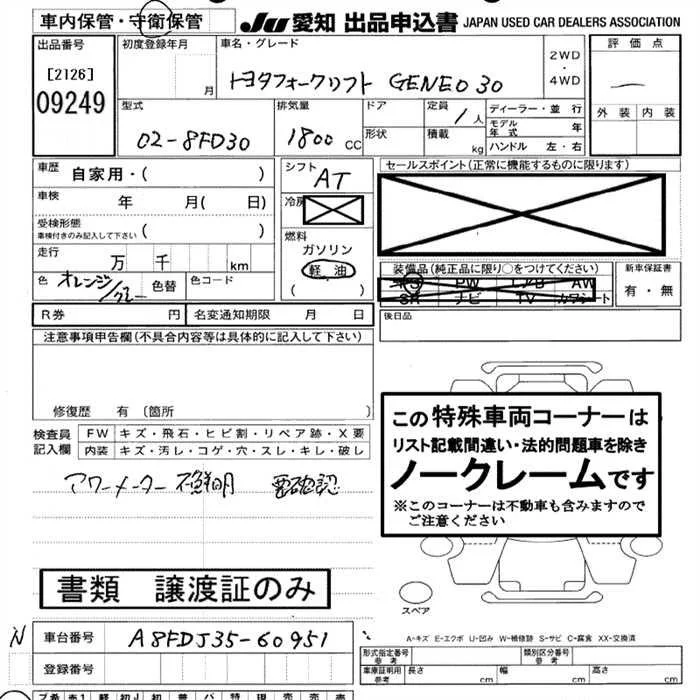 車内保管・守衛保管
JU 愛知 出品申込書 JAPAN USED CAR DEALERS ASSOCIATION
出品番号
[2126]
09249
初度登録年月
月
車名・グレード
トヨタフォークリフト GENEO 30
2WD
・
4WD
評価点
外装 内装
型式
02-8FD30
排気量
1800 CC
ドア
形状
定員
1人
積載
kg
ディーラー・並行
モデル年式 年
ハンドル 左・右
車歴 自家用・( )
車検 年 月( 日)
受検形態
車検付きのみ記入して下さい ( )
走行 万 千 km
色 オレンジ/グレー 色替 色コード
シフト
AT
冷房
燃料
ガソリン
軽油
( )
セールスポイント(正常に機能するものに限ります)
装備品(純正品に限り○をつけてください)
PS PW エアB AW
SR ナビ TV カワシート
新車保証書
有・無
R券 円 名変通知期限 月 日
後日品
注意事項申告欄(不具合内容等は具体的に記入して下さい)
修復歴 有 (箇所 )
検査員記入欄
FW キズ・飛石・ヒビ割・リペア跡・X要
内装 キズ・汚レ・コゲ・穴・スレ・キレ・破レ
アワーメーター 不鮮明 要確認
この特殊車両コーナーは
リスト記載間違い・法的問題車を除き
ノークレームです
※このコーナーは不動車も含みますので
ご注意ください
書類 譲渡証のみ
スペア
N 車台番号 A8FDJ35-60951
登録番号
A-キズ E-エクボ U-凹み W-補修跡 S-サビ C-腐食 XX-交換済
形式指定番号
参考
類別区分番号
参考
車庫証明用
参考
長さ cm 幅 cm 高さ cm